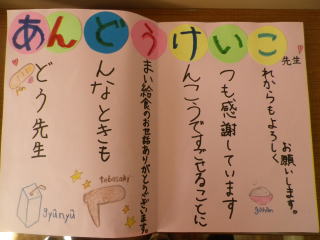 あんどうけいこ先生
どう先生
んなときも
まい給食のお世話ありがとうございます。
んこうですごせることに
つも感謝しています
れからもよろしく
お願いします。
gyūnyū
tebasaki
gohan